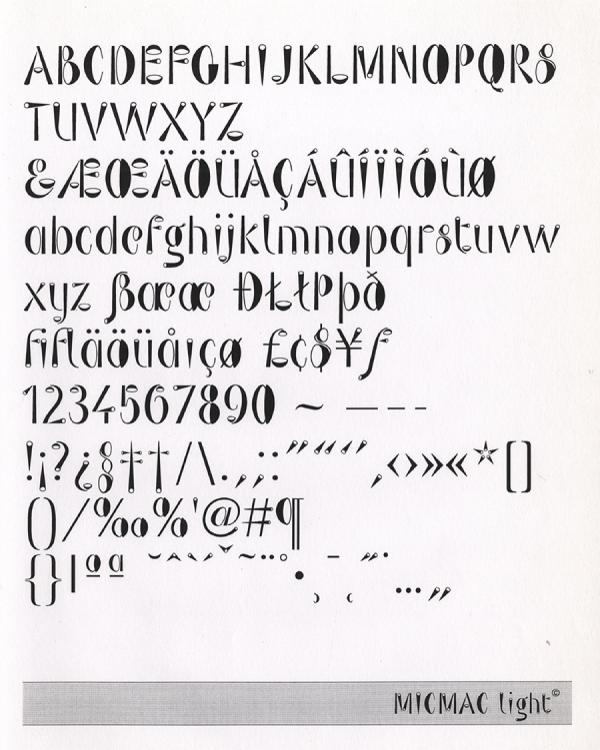 ABCDEFGHIJKLMNOPQRS
TUVWXYZ
&ÆŒÄÖÜÅÇÁÛÍÏÌÓÙØ
abcdefghijklmnopqrstuvw
xyz ßœæ ÐŁłÞþð
fifläöüåıçø £¢$¥ƒ
1234567890 ~ — – -
!¡?¿§‡†/\.,;:”“‘’‚‹›»«*[]
()/‰%'@#¶
{}|ºª ˘ˆ`´ˇ˜¨˙° ¯ ˝˙
• ¸ ˛ …„
MICMAC light©